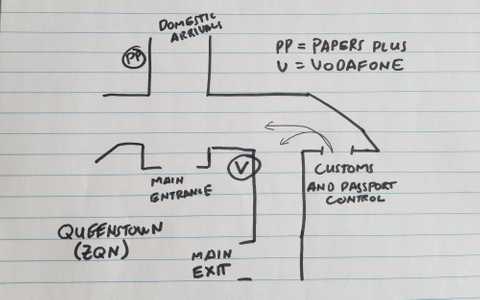 DOMESTIC
ARRIVALS
PP
PP = PAPERS PLUS
V = VODAFONE
V
MAIN
ENTRANCE
CUSTOMS
AND PASSPORT
CONTROL
QUEENSTOWN
(ZQN)
MAIN
EXIT